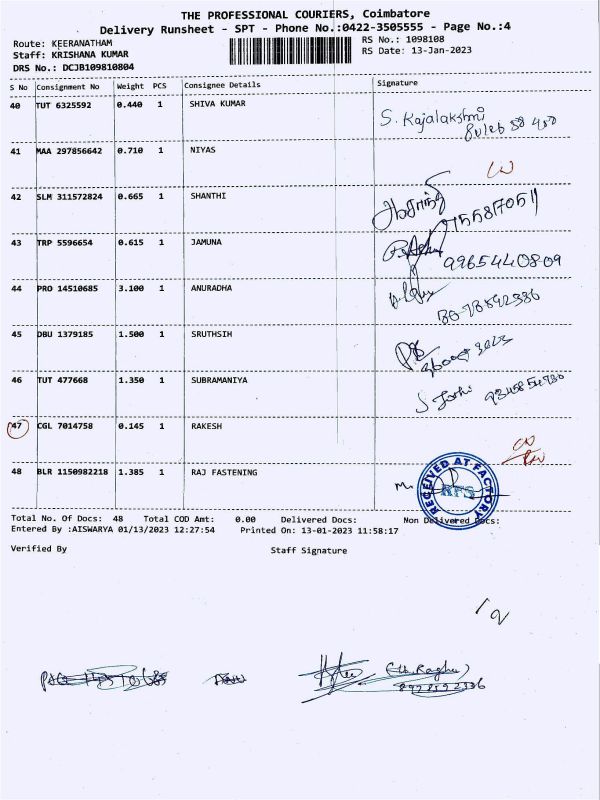 THE PROFESSIONAL COURIERS, Coimbatore
Delivery Runsheet - SPT - Phone No.:0422-3505555 - Page No.:4
Route: KEERANATHAM
RS No.: 1098108
Staff: KRISHANA KUMAR
RS Date: 13-Jan-2023
DRS No.: DCJB109810804
S No Consignment No Weight PCS Consignee Details Signature
40 TUT 6325592 0.440 1 SHIVA KUMAR
S. Rajalakshmi
41 MAA 297856642 0.710 1 NIYAS
42 SLM 311572824 0.665 1 SHANTHI
43 TRP 5596654 0.615 1 JAMUNA
9965440809
44 PRO 14510685 3.100 1 ANURADHA
45 DBU 1379185 1.500 1 SRUTHSIH
46 TUT 477668 1.350 1 SUBRAMANIYA
47 CGL 7014758 0.145 1 RAKESH
48 BLR 1150982218 1.385 1 RAJ FASTENING
RECEIVED AT FACTORY
RFS
Total No. Of Docs: 48 Total COD Amt: 0.00 Delivered Docs: Non Delivered Docs:
Entered By :AISWARYA 01/13/2023 12:27:54 Printed On: 13-01-2023 11:58:17
Verified By Staff Signature